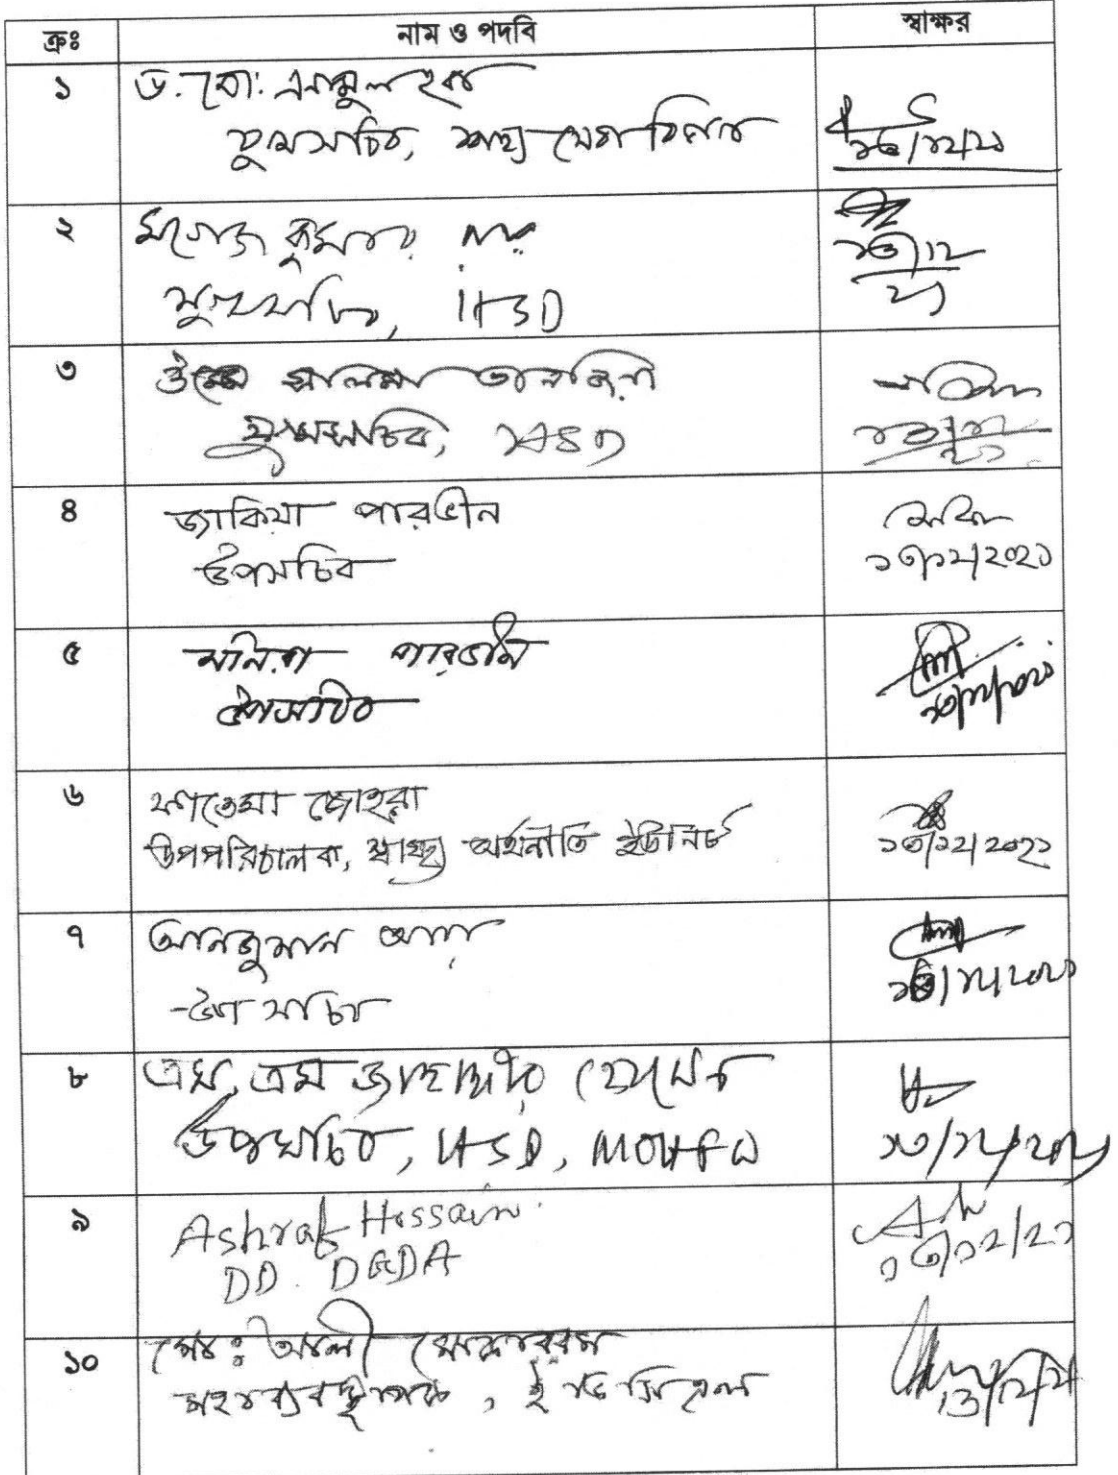 ক্রঃ নাম ও পদবি স্বাক্ষর
১ ড. মো: এনামুল হক
যুগ্মসচিব, স্বাস্থ্য সেবা বিভাগ
১৩/১২/২১
২ মনোজ কুমার রায়
যুগ্মসচিব, HSD
১৩/১২
২১
৩ উম্মে সালমা তানজিয়া
যুগ্মসচিব, HSD
৪ জাকিয়া পারভীন
উপসচিব
১৩/১২/২০২১
৫ মনিরা পারভীন
উপসচিব
১৩/১২/২০২১
৬ ফাতেমা জোহরা
উপপরিচালক, স্বাস্থ্য অর্থনীতি ইউনিট
১৩/১২/২০২১
৭ আনজুমান আরা
উপসচিব
১৩/১২/২০২১
৮ এম, এম জাহাঙ্গীর হোসেন
উপসচিব, HSD, MOHFW
১৩/১২/২০২১
৯ Ashraf Hossain
DD. DGDA
১৩/১২/২১
১০ মোঃ আলী মোকাররম
মহাব্যবস্থাপক, ইডিসিএল
১৩/১২/২১